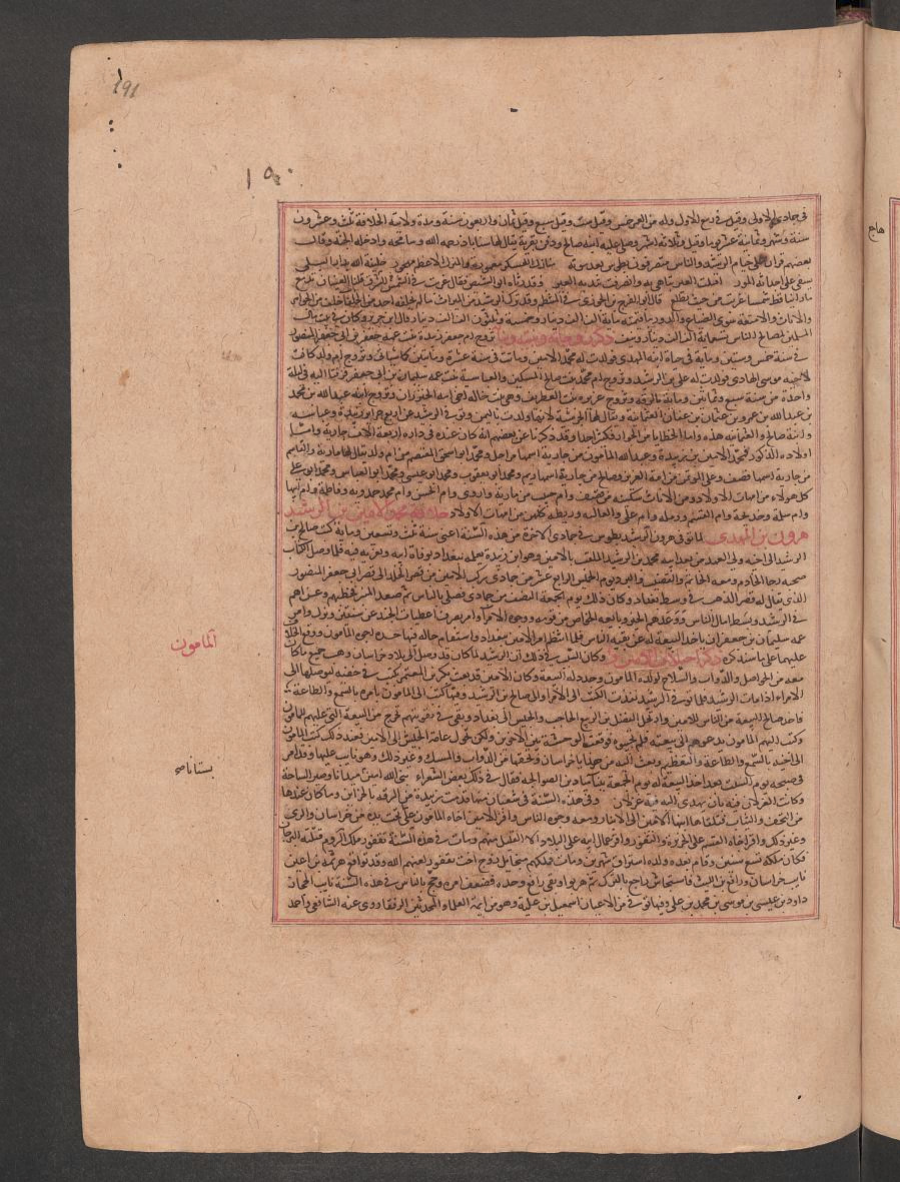 191
١٥٠
في جمادى الاولى وقيل في ربيع الاول وله من العمر خمس وقيل ست وقيل سبع وقيل ثمان واربعون سنة ومدة ولايته الخلافة ثلث وعشرون
سنة وشهر وثمانية عشر يوما وقيل وثلاثة اشهر وصلى عليه ابنه صالح ودفن بقرية يقال لها سناباذ رحمه الله وسامحه وادخله الجنة وقال
بعضهم
منازل العسكر معمورة والمنزل الاعظم مهجور خليفة الله بدار البلى
يسفي على اجداثه المور اقبلت العير تباهي به وانصرفت تندبه العير وقد رثاه ابو الشيص فقال غربت في الشرق الشمس فلها العينان تدمع
ما راينا قط شمسا غربت من حيث تطلع قال ابو الفرج بن الجوزي في المنتظم وقد ترك الرشيد من الميراث ما لم يخلفه احد من الخلفاء خلف من الجواهر
والاثاث والامتعة سوى الضياع والدور ما قيمته مائة الف الف دينار وخمسة وثلثون الف الف دينار قال ابن جرير وكان في بيت المال
لمصالح الناس تسعماية الف الف دينار ونيف ذكر زوجاته وبنيه وبناته تزوج ام جعفر زبيدة بنت عمه جعفر بن ابي جعفر المنصور
في سنة خمس وستين وماية في حياة ابيه المهدي فولدت له محمد الامين وماتت في سنة عشرة ومايتين كما سياتي وتزوج ام ولد كانت
لاخيه موسى الهادي فولدت له علي بن الرشيد وتزوج ام محمد بنت صالح المسكين والعباسة بنت عمه سليمان بن ابي جعفر فزفتا اليه في ليلة
واحدة من سنة سبع وثمانين وماية بالرقة وتزوج عزيزة بنت الغطريف وهي بنت خاله اخي امه الخيزران وتزوج ابنة عبد الله بن محمد
بن عبد الله بن عمرو بن عثمان بن عفان العثمانية ويقال لها الجرشية لانها ولدت باليمن وتوفي الرشيد عن اربع حراير زبيدة وعباسة
وابنة صالح والعثمانية هذه واما الحظايا من الجوار فكثير جدا وقد ذكرنا عن بعضهم انه كان عنده في داره اربعة الاف جارية واما
اولاده الذكور فمحمد الامين بن زبيدة وعبد الله المامون من جارية اسمها مراجل ومحمد ابو اسحق المعتصم من ام ولد يقال لها ماردة والقاسم
من جارية اسمها قصف وعلي
كل هولاء من امهات الاولاد ومن الاناث سكينة من قصف وام حبيب من ماردة واروى وام الحسن وام محمد حمدونة وفاطمة وام ابيها
وام سلمة وخديجة وام القسم ورملة وام علي والغالية وريطة كلهن من امهات الاولاد خلافة محمد الامين بن الرشيد
هرون بن المهدي لما توفي هرون الرشيد بطوس في جمادى الاخرة من هذه السنة اعني سنة ثلث وتسعين وماية كتب صالح بن
الرشيد الى اخيه ولي العهد من بعد ابيه محمد بن الرشيد الملقب بالامين وهو ابن زبيدة يعلمه ببغداد بوفاة ابيه ويعزيه فيه فلما وصل الكتاب
صحبة رجا الخادم ومعه الخاتم والقضيب والبردة يوم الخميس الرابع عشر من جمادى ركب الامين من قصر الخلد الى قصر ابي جعفر المنصور
الذي يقال له قصر الذهب في وسط بغداد وكان ذلك يوم الجمعة النصف من جمادى فصلى بالناس ثم صعد المنبر فخطبهم وعزاهم
في الرشيد وبسط امال الناس ووعدهم الخير وبايعه الخواص من قومه ووجوه الامراء وامر بصرف اعطيات الجند عن سنتين ونزل وامر
عمه سليمان بن جعفر ان ياخذ البيعة له من بقية الناس فلما انتظم امر الامين ببغداد واستقام حاله فيها حسده اخوه المامون ووقع الخلف
عليهما على ما سنذكره ذكر اختلاف الامين وكان السبب في ذلك ان الرشيد لما كان قد وصل الى بلاد خراسان وهب جميع ما كان
معه من الحواصل والدواب والسلاح لولده المامون وجدد له البيعة وكان الامين قد بعث بكر بن المعتمر بكتب في خفية ليوصلها الى
الامراء اذا مات الرشيد فلما توفي الرشيد نفذت الكتب الى الامراء والى صالح بن الرشيد وفيها كتب الى المامون يامره بالسمع والطاعة
فاخذ صالح البيعة من الناس للامين وارتحل الفضل بن الربيع الحاجب والجيش الى بغداد وبقي في نفوسهم تحرج من البيعة التي عليهم للمامون
وكتب اليهم المامون يدعوهم الى بيعته فلم يجيبوه فوقعت الوحشة بين الاخوين ولكن تحول عامة الجيش الى الامين فعند ذلك كتب المامون
الى اخيه بالسمع والطاعة والتعظيم وبعث اليه من هدايا خراسان وتحفها من الدواب والمسك وغير ذلك وهو نايبه عليها وقد امر
في صبيحة يوم السبت بعد اخذ البيعة له يوم الجمعة ببناء ميدانين للصوالجة فقال في ذلك بعض الشعراء بنى الله امين ميدانا وصير الساحة
بستانا صح
وكانت الغزلان فيه بان يهدى اليه فيه غزلان وفي هذه السنة في شعبان منها قدمت زبيدة من الرقة بالخزاين وما كان عندها
من التحف والثياب فتلقاها ابنها الامين الى الانبار ومعه وجوه الناس واقر الامين اخاه المامون على ما تحت يده من خراسان والري
وغير ذلك واقر اخاه القسم على الجزيرة والثغور واقر عمال ابيه على البلاد الا القليل منهم ومات في هذه السنة نقفور ملك الروم قتله البرجان
فكان ملكه تسع سنين وقام بعده ولده استبراق شهرين ومات فملكهم ميخاييل زوج اخت نقفور لعنهم الله وقد تواقع هرثمة بن اعين
نايب خراسان ورافع بن الليث فاستجاش رافع بالترك ثم هربوا وبقي رافع وحده فضعف امره وحج بالناس في هذه السنة نايب الحجاز
داود بن عيسى بن موسى بن محمد بن علي وفيها توفي من الاعيان اسمعيل بن علية وهو من ايمة العلماء والمحدثين الرفعاء روى عنه الشافعي واحمد
المامون